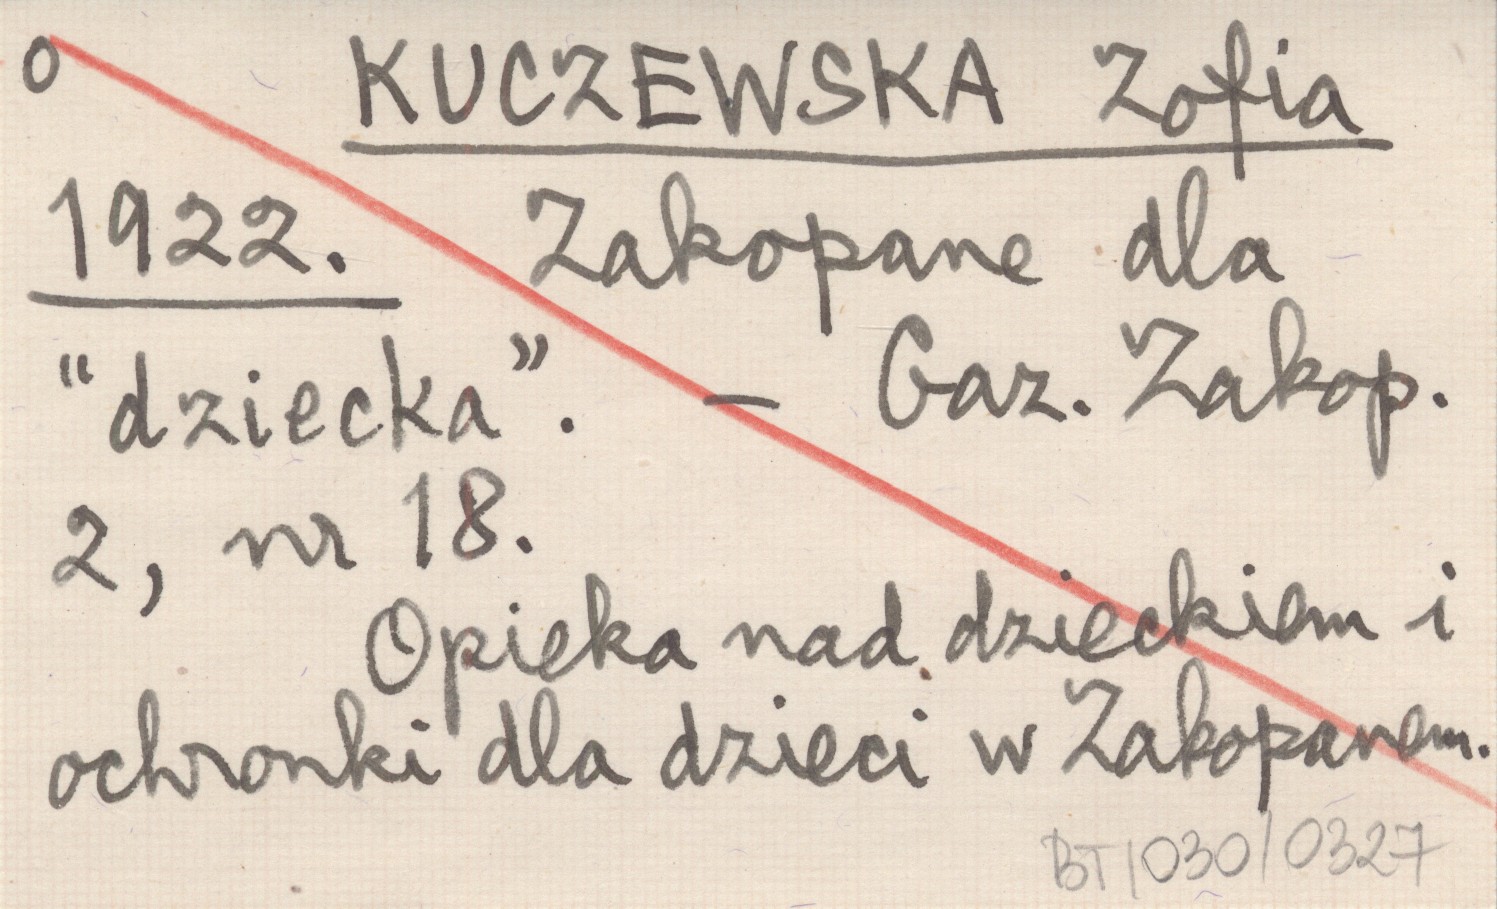 o KUCZEWSKA Zofia
1922. Zakopane dla
"dziecka". — Gaz. Zakop.
2, nr 18.
Opieka nad dzieckiem i
ochronki dla dzieci w Zakopanem.
BT/030/0327